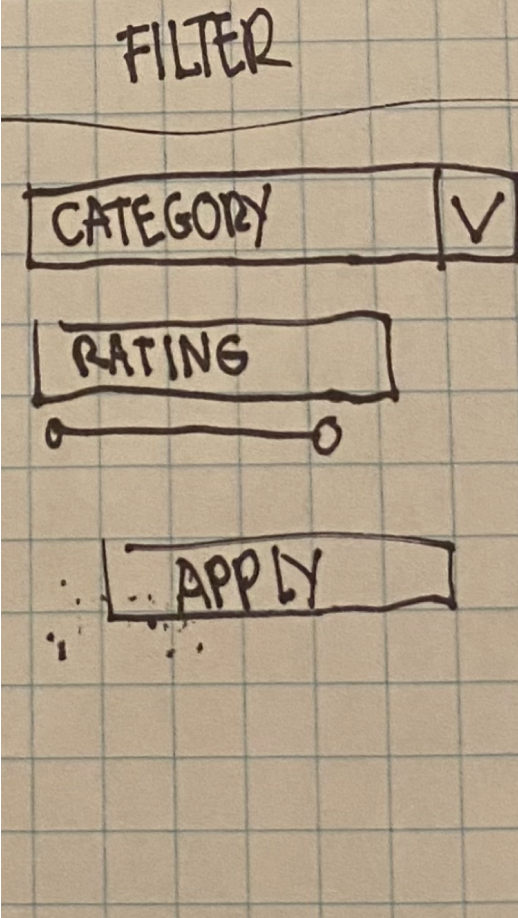 FILTER
CATEGORY
RATING
APPLY